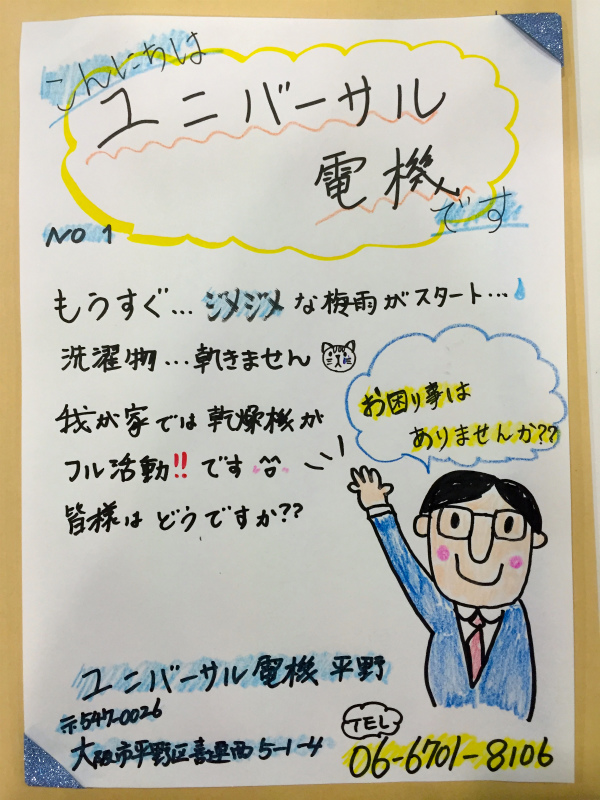 こんにちは
ユニバーサル
電機
です
NO 1
もうすぐ...ジメジメな梅雨がスタート...
洗濯物...乾きません
我が家では乾燥機が
フル活動!!です
皆様はどうですか??
お困り事は
ありませんか??
ユニバーサル電機 平野
〒547-0026
大阪市平野区喜連西5-1-4
TEL
06-6701-8106